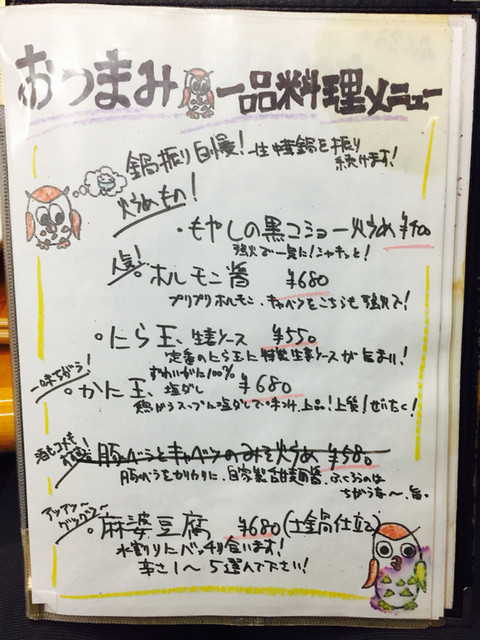 おつまみ一品料理メニュー
鍋振り自慢！生中華鍋を振り
続けます！
炒めもの！
・もやしの黒コショー炒め
強火で一気に！シャキッと！
人気！
ホルモン醤 ¥680
プリプリホルモン、キャベツをこちらも強火で！
・にら玉、生姜ソース ¥550
定番のにら玉に特製生姜ソースが旨まい！
一味ちがう！
ずわいがに100%
・かに玉、塩ダし ¥680
鶏がらスープに塩ダしで味付、上品！上質！ぜいたく！
豚バラとキャベツのみそ炒め ¥580
豚バラをカリカリに、自家製甜麺醤、ふくろうのは
ちがうな〜、旨。
アツアツ〜
グツグツ〜
・麻婆豆腐 ¥680(土鍋仕立)
水割りにバッチリ合います！
辛さ1〜5選んで下さい！